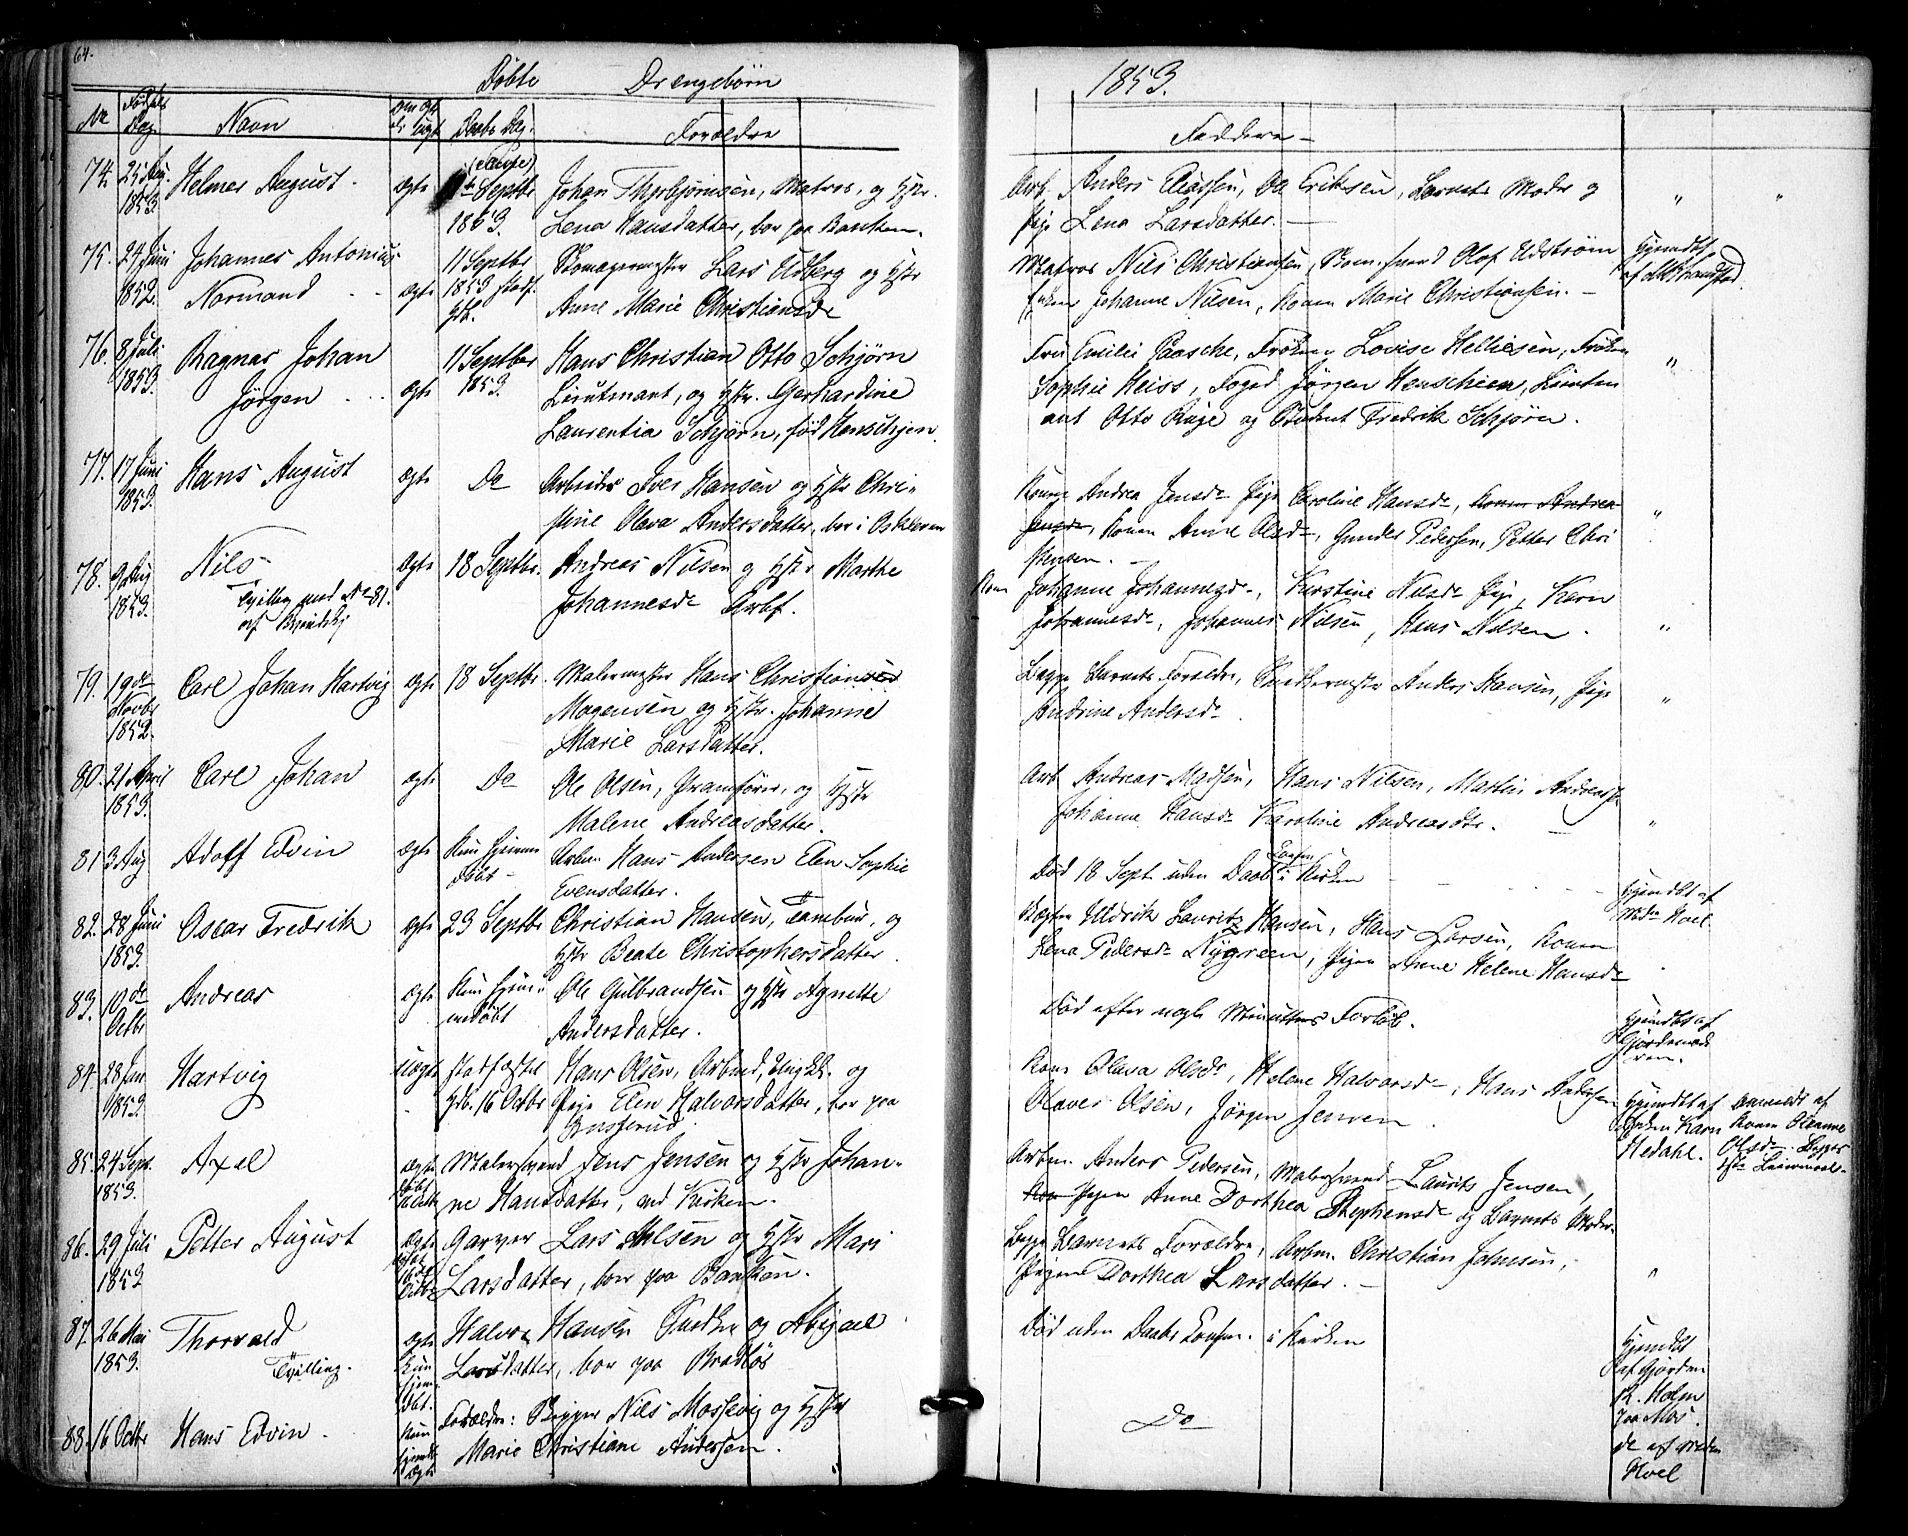 64.
Døbte Drengebørn
1853.
No Fødsels Dag. Navn Daabs Dag. Forældre
Faddere
74. 25 1853. Helmer August. ægte Septbr 1853. Johan Thorbjørnsen, Matros, og Hstr.
Lena Hansdatter, bor paa Banken.
Arb. Anders Eliassen, Do Eriksen, Barnets Moder og
Pige Lena Larsdatter.
75. 24 Juni 1852. Johannes Antonius
Normand ægte 11 Septbr 1853 Skomagermester Lars Udberg og Hstr
Anne Marie Christiansdr
Matros Nils Christiansen, Olof Udstrøm
Enken Johanne Nilsen, Konen Marie Christiansen.
Hjemdøbt af
76. 8 Juli 1853. Ragnar Johan
Jørgen ægte 11 Septbr 1853. Hans Christian Otto Schjørn
Lieutnant, og Hstr. Gerhardine
Laurentia Schjørn, fød Henschjen.
Fru Emilie Paasche, Frøken Lovise Helliesen, Frøken
Sophie Heiss, Foged Jørgen Henschien, Lieuten
ant Otto og Student Fredrik Schjørn.
77. 17 Juni 1853. Hans August ægte Do Arbeider Iver Hansen og Hstr Chri-
stine Olava Andersdatter, bor i
Andrea Jensdr Pige Caroline Hansdr, Konen Andrea
Jensdr, Konen Anne Olsdr, Gunder Pedersen, Petter Chri
stensen.
78. 9 Aug 1853. Nils ægte 18 Septbr. Andreas Nilsen og Hstr Marthe
Tvilling med
Johannesdr
Kone Johanne Johannesdr, Kirstine Nilsdr Pige, Karn
Johannesdr, Johannes Nilsen, Hans Nilsen.
79. 19de Novbr 1852. Carl Johan Hartvig ægte 18 Septbr. Malermester Hans Christiansen
Magensen og Hstr. Johanne
Marie Larsdatter.
Begge Barnets Forældre, Snedkermester Anders Hansen, Pige
Andrine Andersdr
80. 21 April 1853. Carl Johan ægte Do Ole Olsen, Pramfører, og Hstr
Malene Andreasdatter.
Arb. Andreas Madsen, Hans Nilsen, Martin Andreas
Johanne Hansdr Karoline Andreasdtr.
81 3 Aug Adolf Edvin ægte Kun hjemme døbt Arbm. Hans Andersen Elen Sophie
Evensdatter.
Død 18 Sept uden Daab i Kirken
Hjemdøbt af Hoel.
82. 28 Juni 1853. Oscar Fredrik ægte 23 Septbr Christian Hansen, Tambur, og
Hstr Beate Christophersdatter
Uldrik Lauritz Hansen, Hans Larsen, Konen
Lena Pedersdr Nygreen, Pigen Anne Helene Hansdr
83. 10de Octbr Andreas ægte Kun hjemmedøbt Ole Gulbrandsen og Hstr Agnette
Andersdatter.
Død efter nogle Minutters Forløb.
Hjemdøbt af Gjordemoderen.
84. 28 Juni 1853. Hartvig uægte stadfæstet 16 Octbr Hans Olsen, Arbeid, Ung og
Pige Elen Halvorsdatter, bor paa
Kone Olava Olsdr, Helene Halvorsdr, Hans Andersen
Olaves Olsen, Jørgen Jensen.
Hjemdøbt af Enken Karn Hedahl.
Anmeldt af Konen Oleanne Olsdr
85. 24 Sept. 1853. Axel ægte Malersvend Jens Jensen og Hstr Johan-
ne Hansdatter, ved Kirken.
Arbm. Anders Pedersen, Malersvend Laurits Jensen,
Pigen Anne Dorthea Stephensdr og Barnets Moder.
86. 29 Juli 1853 Petter August ægte Garver Lars Nilsen og Hstr Mari
Larsdatter, bor paa Banken.
Begge Barnets Forældre, Arbm. Christian Johnsen,
Pigen Dorthea Larsdatter.
87. 26 Mai 1853. Thorvald ægte Halvor Hansen og Abigael
Tvilling. Kun hjemdøbt. Larsdatter, bor paa
Død uden Daabs Konfirm. i Kirken
Hjemdøbt af Gjordem R. Holm paa Mos.
88. 16 Octbr Hans Edvin. Kun hjemdøbt ægte Forældre: Bygger Nils Mossevig og Hstr
Marie Christiane Andersen.
Do
do af
Hoel